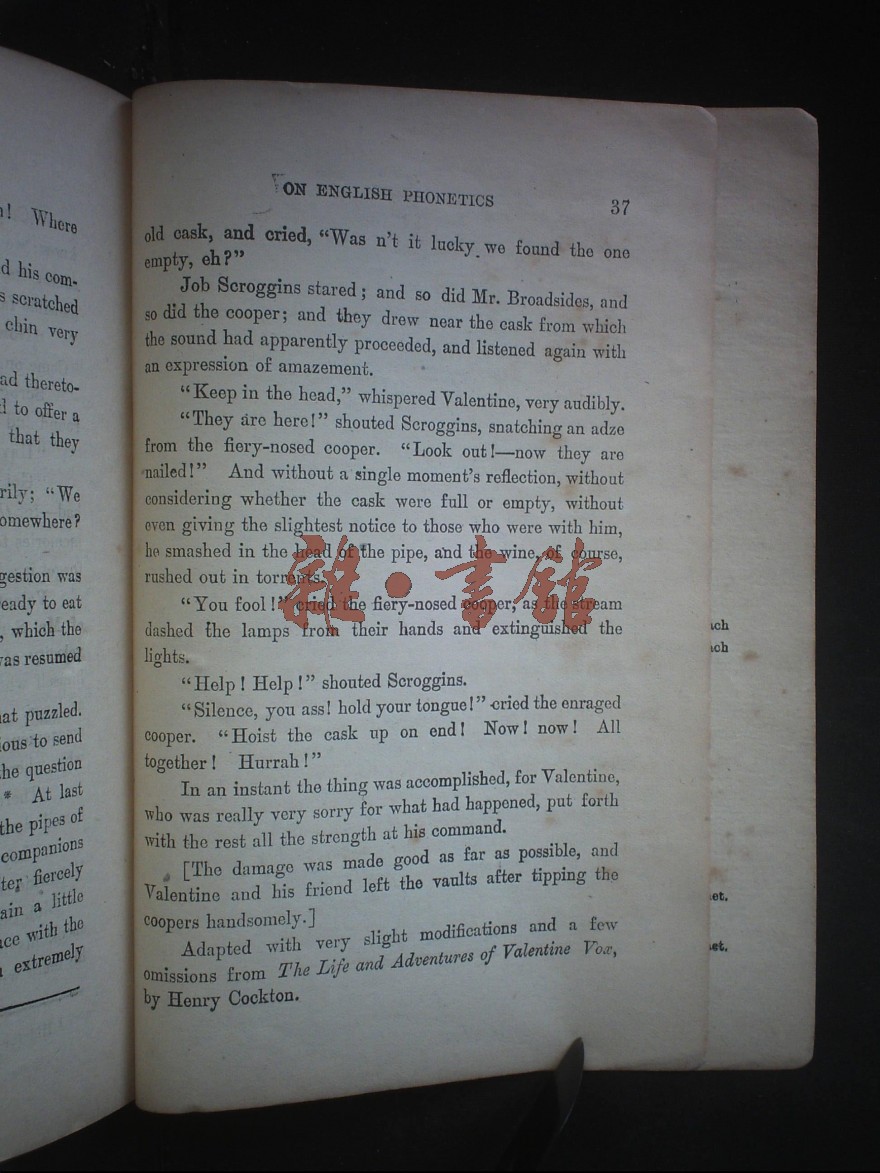 ! Where
d his com-
s scratched
chin very
ad thereto-
to offer a
that they
rily; "We
omewhere?
gestion was
eady to eat
, which the
was resumed
at puzzled.
ious to send
he question
* At last
the pipes of
companions
ter fiercely
ain a little
ce with the
extremely
ON ENGLISH PHONETICS
37
old cask, and cried, "Was n't it lucky we found the one
empty, eh?"
Job Scroggins stared; and so did Mr. Broadsides, and
so did the cooper; and they drew near the cask from which
the sound had apparently proceeded, and listened again with
an expression of amazement.
"Keep in the head," whispered Valentine, very audibly.
"They are here!" shouted Scroggins, snatching an adze
from the fiery-nosed cooper. "Look out!—now they are
nailed!" And without a single moment's reflection, without
considering whether the cask were full or empty, without
even giving the slightest notice to those who were with him,
he smashed in the head of the pipe, and the wine, of course,
rushed out in torrents.
"You fool!" cried the fiery-nosed cooper, as the stream
dashed the lamps from their hands and extinguished the
lights.
"Help! Help!" shouted Scroggins.
"Silence, you ass! hold your tongue!" cried the enraged
cooper. "Hoist the cask up on end! Now! now! All
together! Hurrah!"
In an instant the thing was accomplished, for Valentine,
who was really very sorry for what had happened, put forth
with the rest all the strength at his command.
[The damage was made good as far as possible, and
Valentine and his friend left the vaults after tipping the
coopers handsomely.]
Adapted with very slight modifications and a few
omissions from The Life and Adventures of Valentine Vox,
by Henry Cockton.
雜·書館
ach
ach
et.
et.